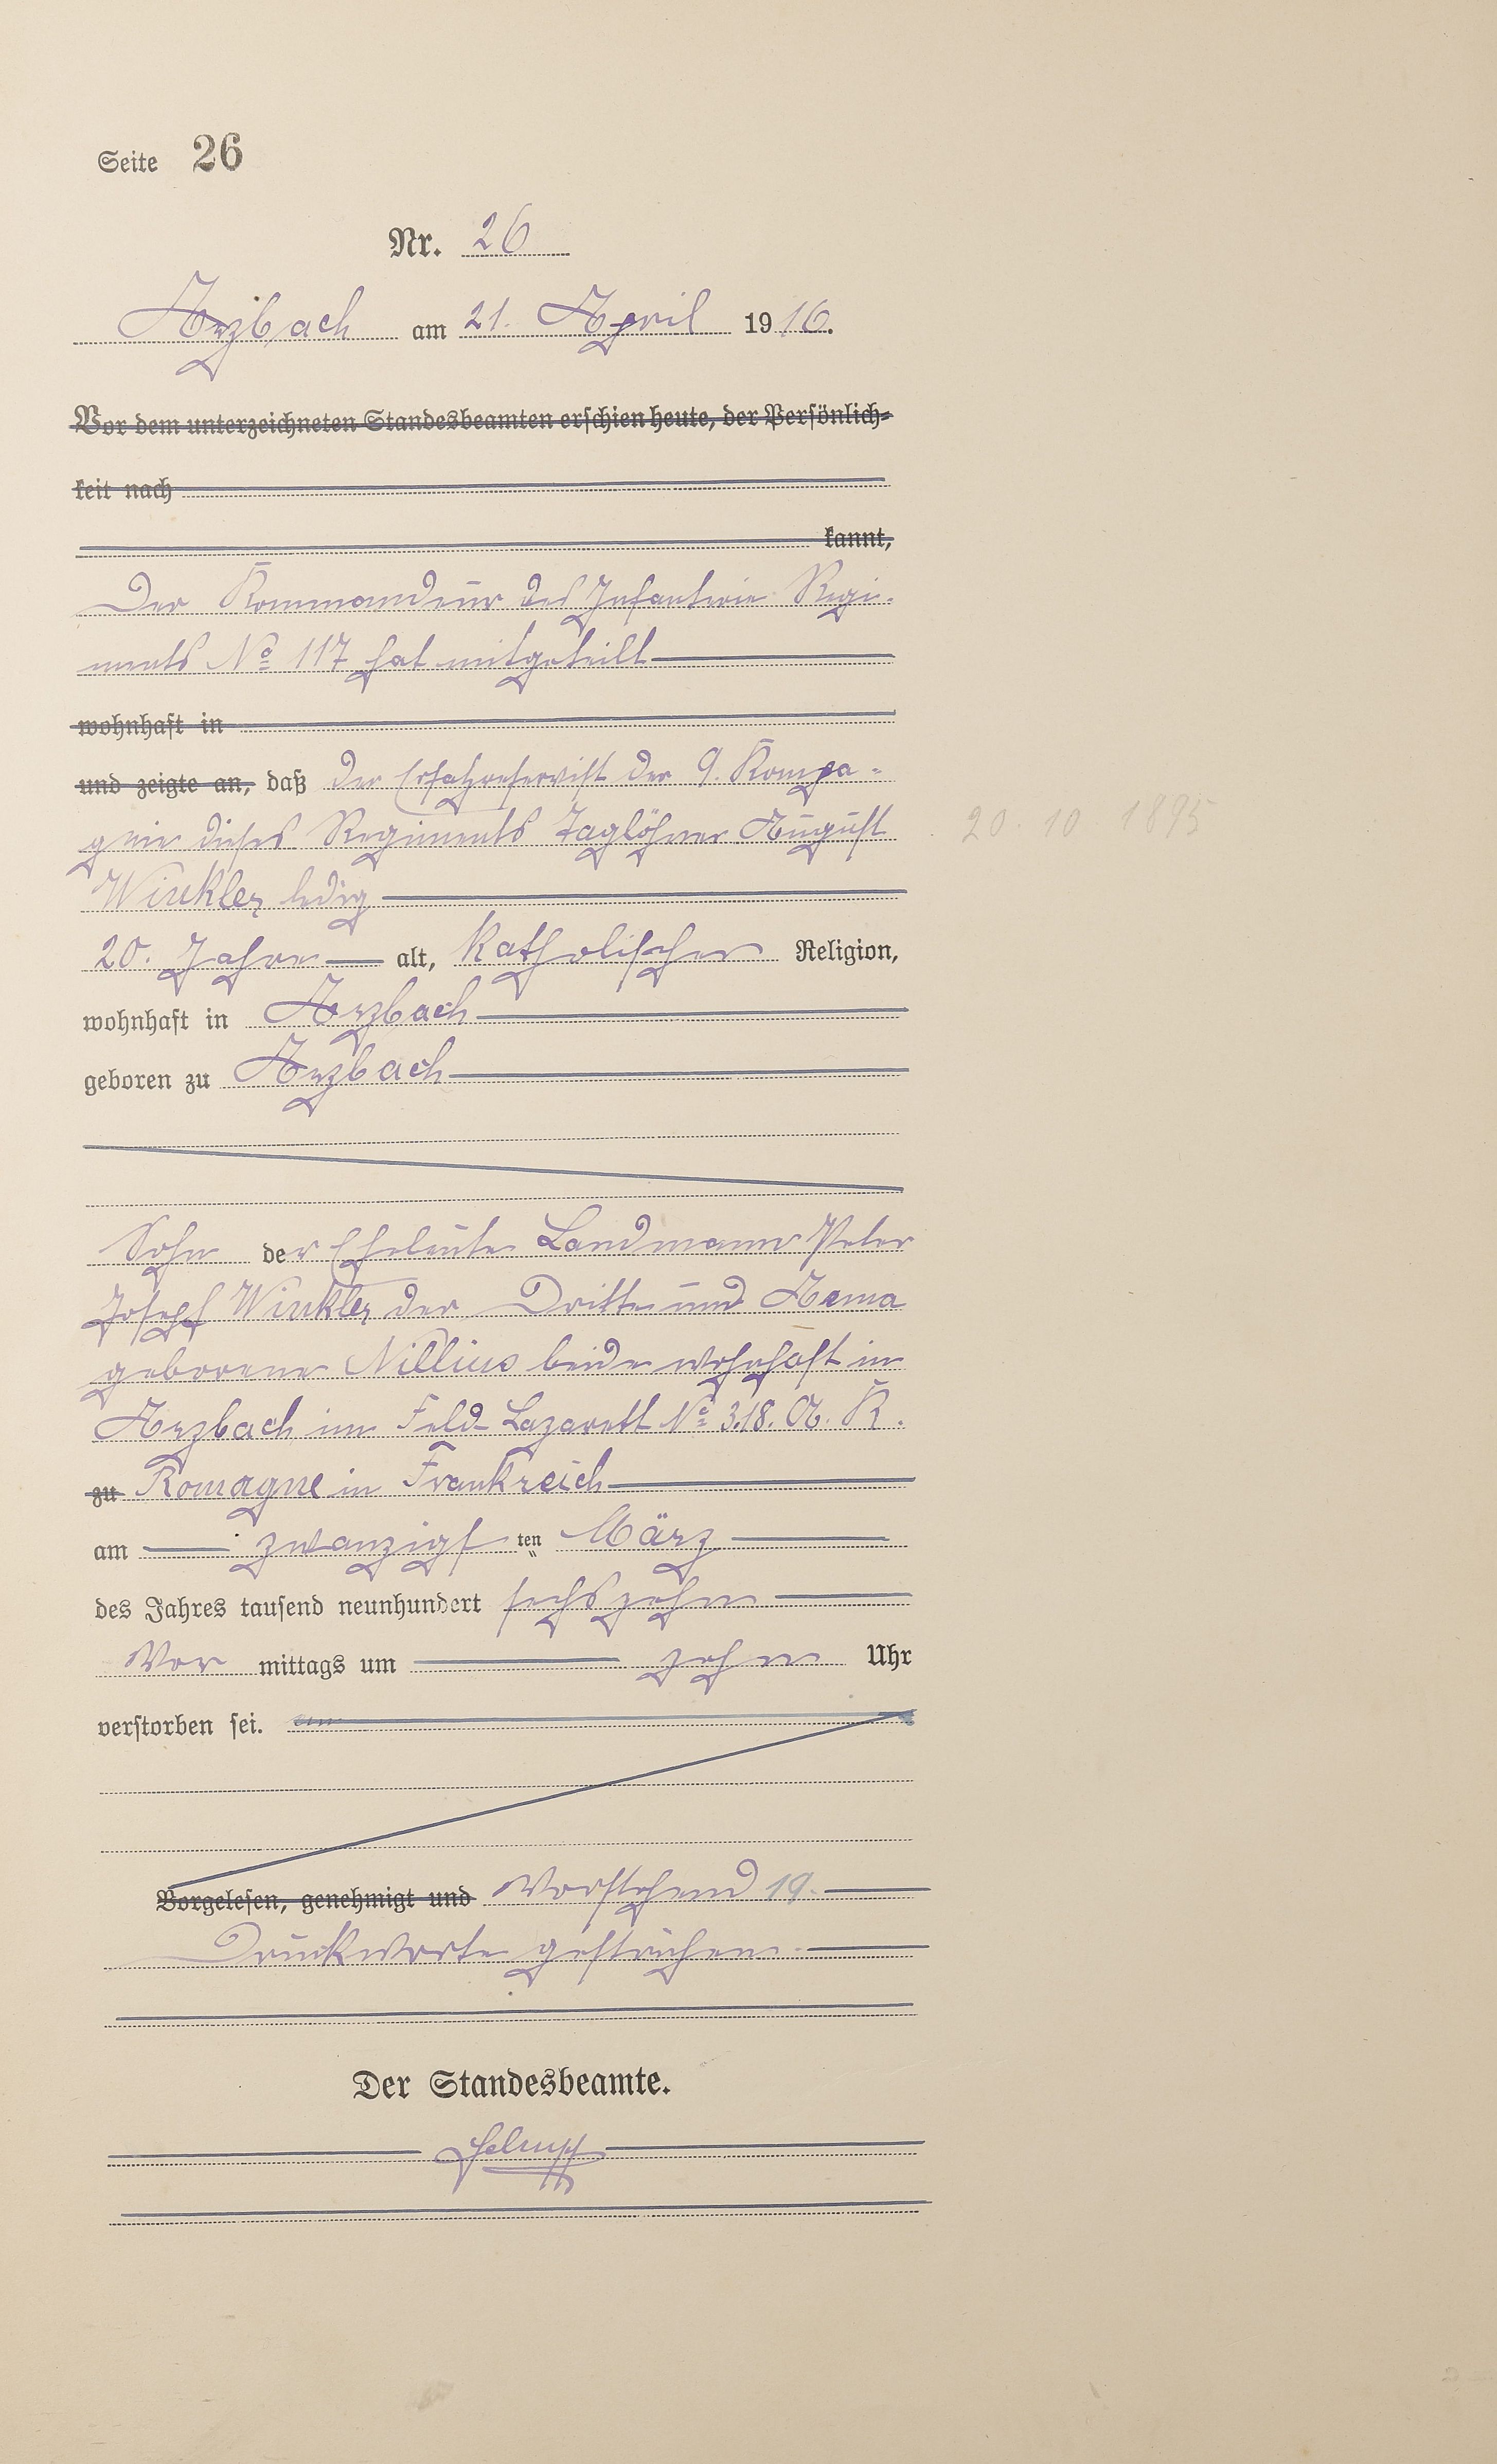 Seite 26
Nr. 26
Arzbach am 21. April 1916.
Vor dem unterzeichneten Standesbeamten erschien heute, der Persönlich-
keit nach
kannt,
Der Kommandeur des Infanterie Regi-
ments No 117 hat mitgeteilt
wohnhaft in
und zeigte an, daß der Ersatzreservist der 9. Kompa-
gnie dieses Regiments Taglöhner August
20. 10. 1895
Winkler ledig
20. Jahre alt, katholischer Religion,
wohnhaft in Arzbach
geboren zu Arzbach
Sohn der Eheleute Landmann Peter
Josef Winkler der Dritte und Anna
geborene Nillius beide wohnhaft in
Arzbach im Feld-Lazarett No 3.18. A. K.
zu Romagne in Frankreich
am zwanzigsten März
des Jahres tausend neunhundert sechszehn
Vor mittags um zehn Uhr
verstorben sei.
Vorgelesen, genehmigt und Vorstehend 19.
Druckworte gestrichen.
Der Standesbeamte.